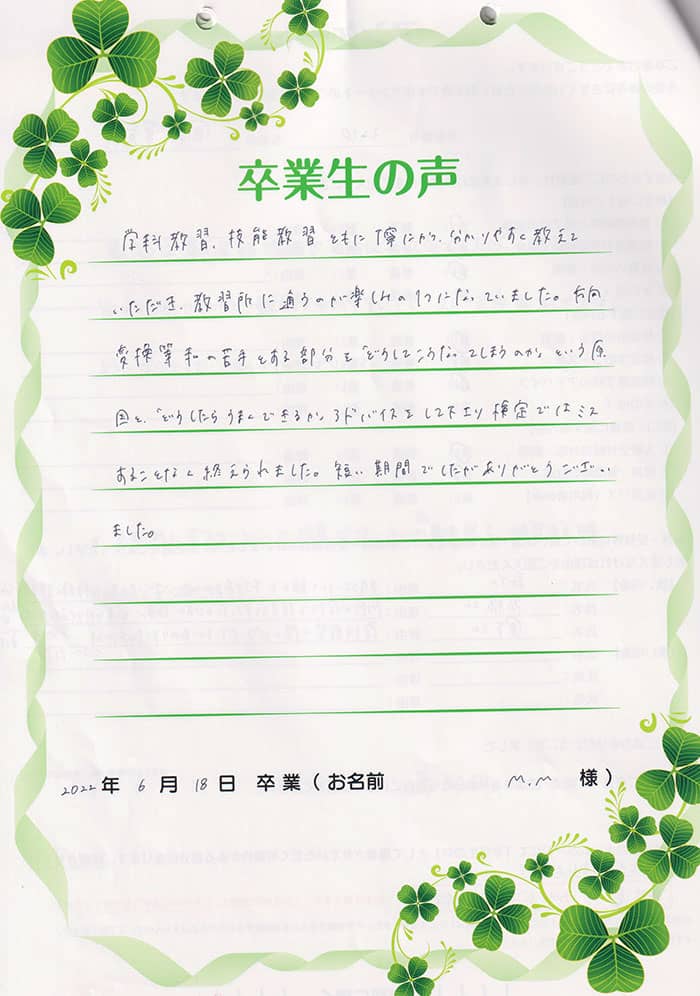 卒業生の声
学科教習、技能教習ともに丁寧にかつ、分かりやすく教えて
いただき、教習所に通うのが楽しみの1つになっていました。方向
変換等私の苦手とする部分を「どうしてこうなってしまうのか」という原
因と、「どうしたらうまくできるか」アドバイスをして下さり検定ではミス
することなく終えられました。短い期間でしたがありがとうござい
ました。
2022年 6月 18日 卒業(お名前 M.M 様)